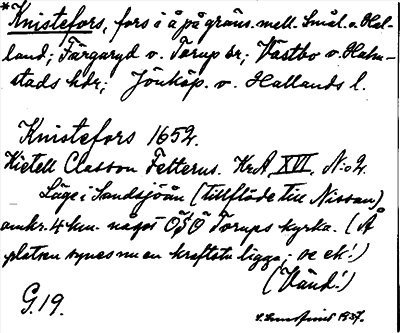 *Knistefors, fors i å på gräns. mell. Smål. o. Hal-
land; Färgaryd o. Torup sr; Västbo o. Halm-
stads hdr; Jönköp. o. Hallands l.
Knistefors 1652.
Kietell Classon Fetterus. KrA XVI, N:o 2.
Läge i Sandsjöån (tillflöde till Nissan)
omkr. 4 km. något ÖSÖ Torups kyrka. (Å
platsen synes nu en kraftstn ligga; se ek!)
(Vänd!)
G. 19.
1937.